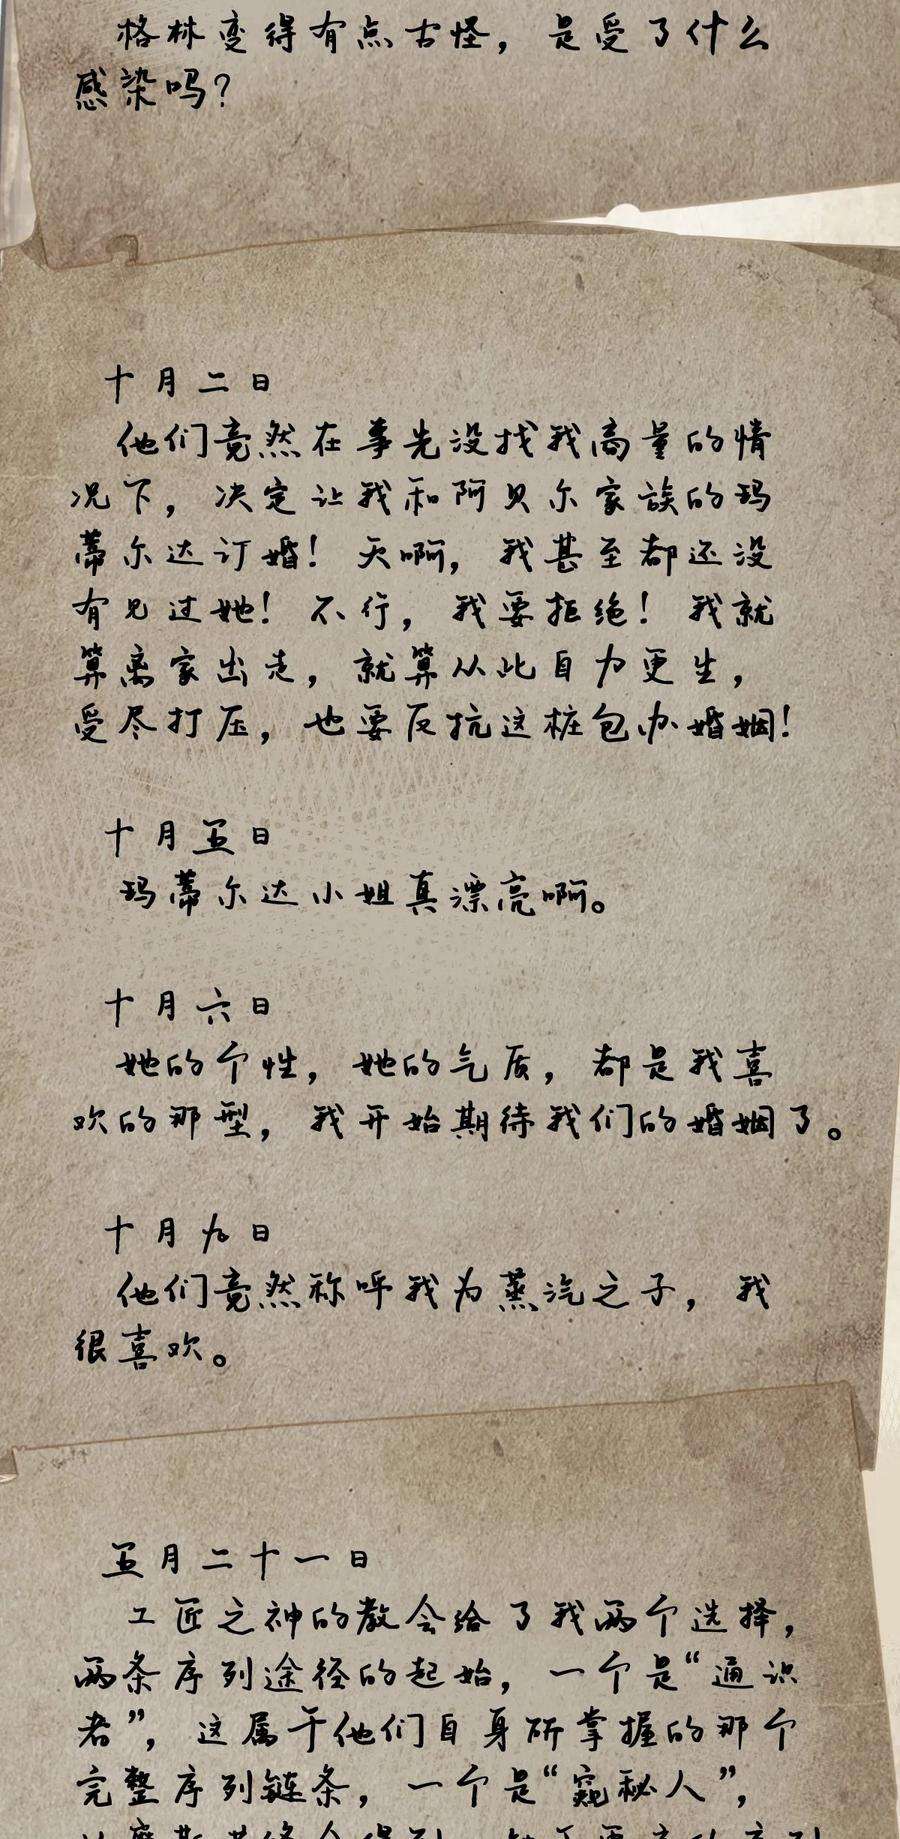 格林变得有点古怪，是受了什么
感染吗？
十月二日
他们竟然在事先没找我商量的情
况下，决定让我和阿贝尔家族的玛
蒂尔达订婚！天啊，我甚至都还没
有见过她！不行，我要拒绝！我就
算离家出走，就算从此自力更生，
受尽打压，也要反抗这桩包办婚姻！
十月五日
玛蒂尔达小姐真漂亮啊。
十月六日
她的个性，她的气质，都是我喜
欢的那型，我开始期待我们的婚姻了。
十月九日
他们竟然称呼我为蒸汽之子，我
很喜欢。
五月二十一日
工匠之神的教会给了我两个选择，
两条序列途径的起始，一个是“通识
者”，这属于他们自身所掌握的那个
完整序列链条，一个是“窥秘人”，